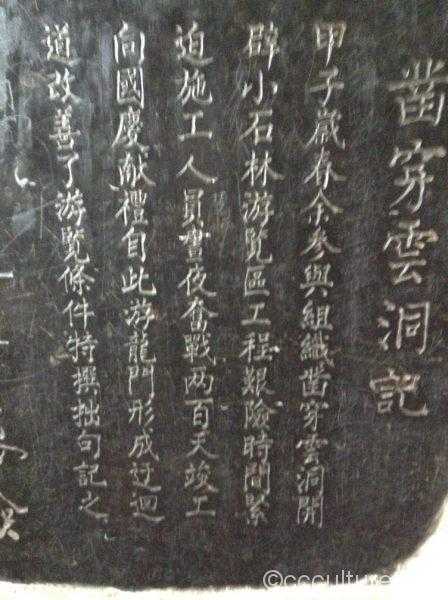 凿穿雲洞記
甲子歲春余参與組織凿穿雲洞開
辟小石林游覽區工程艱險時間緊
迫施工人員晝夜奮戰两百天竣工
向國慶献禮自此游龍門形成迂迴
道改善了游覽條件特撰拙句記之
©ccculture